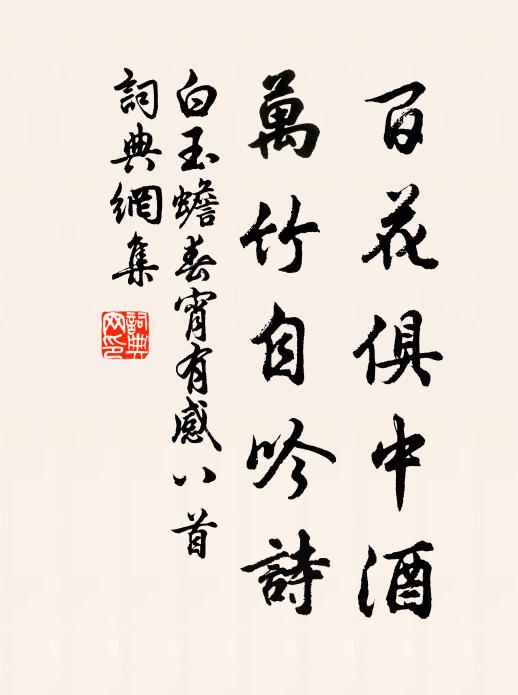 百花俱中酒
萬竹自吟詩
白玉蟾春宵有感八首
詞典網集
詞典網印